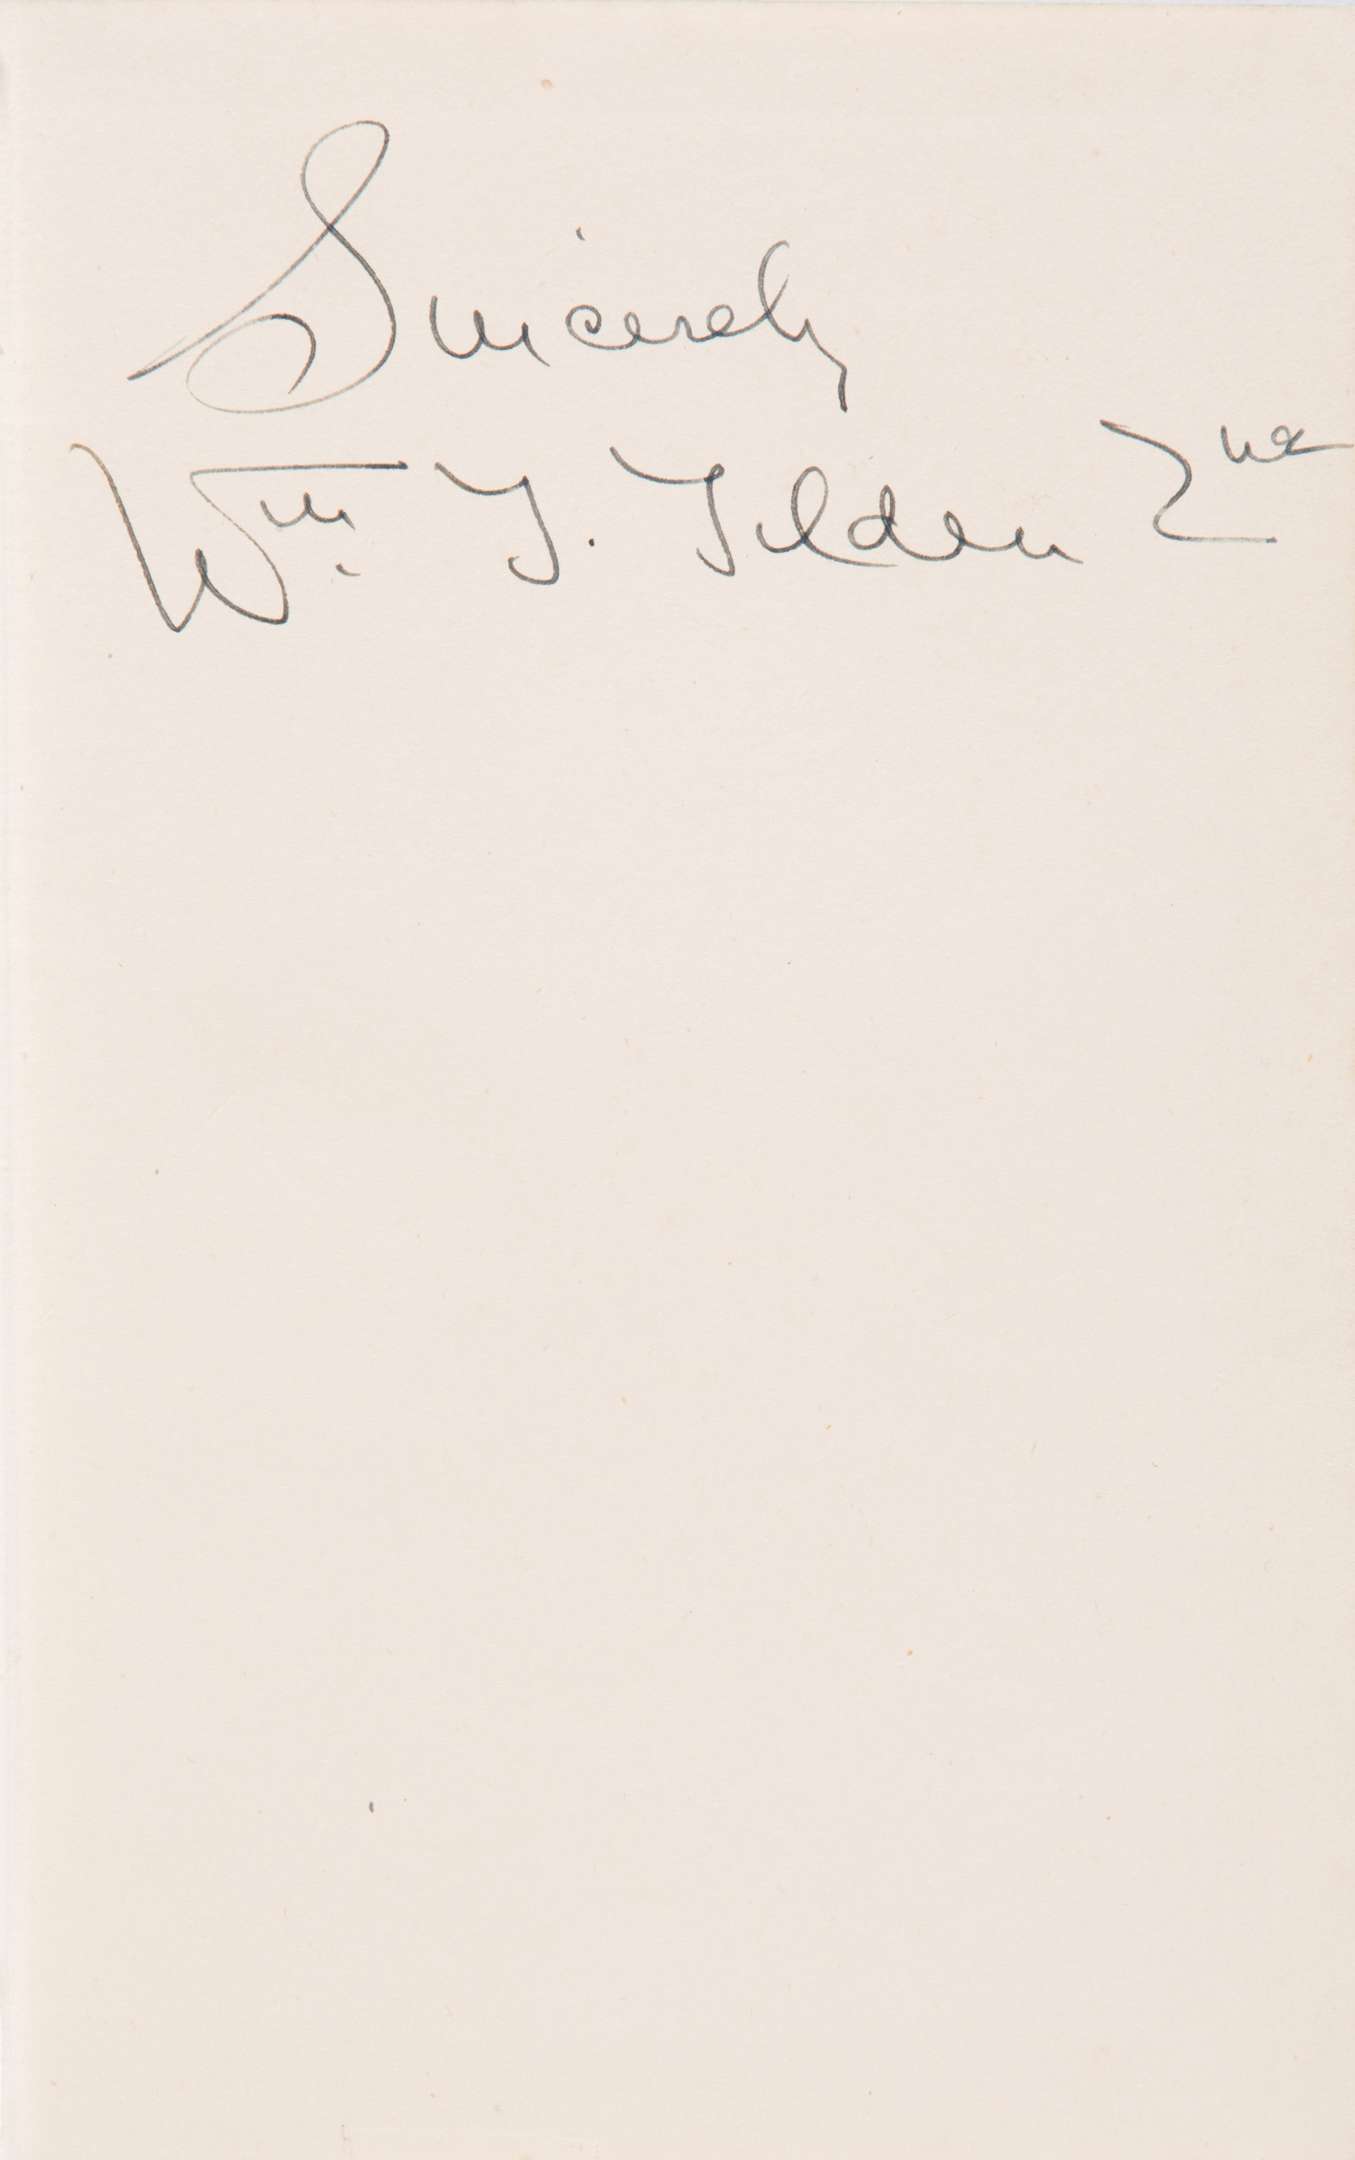 Sincerely
Wm. T. Tilden 2nd